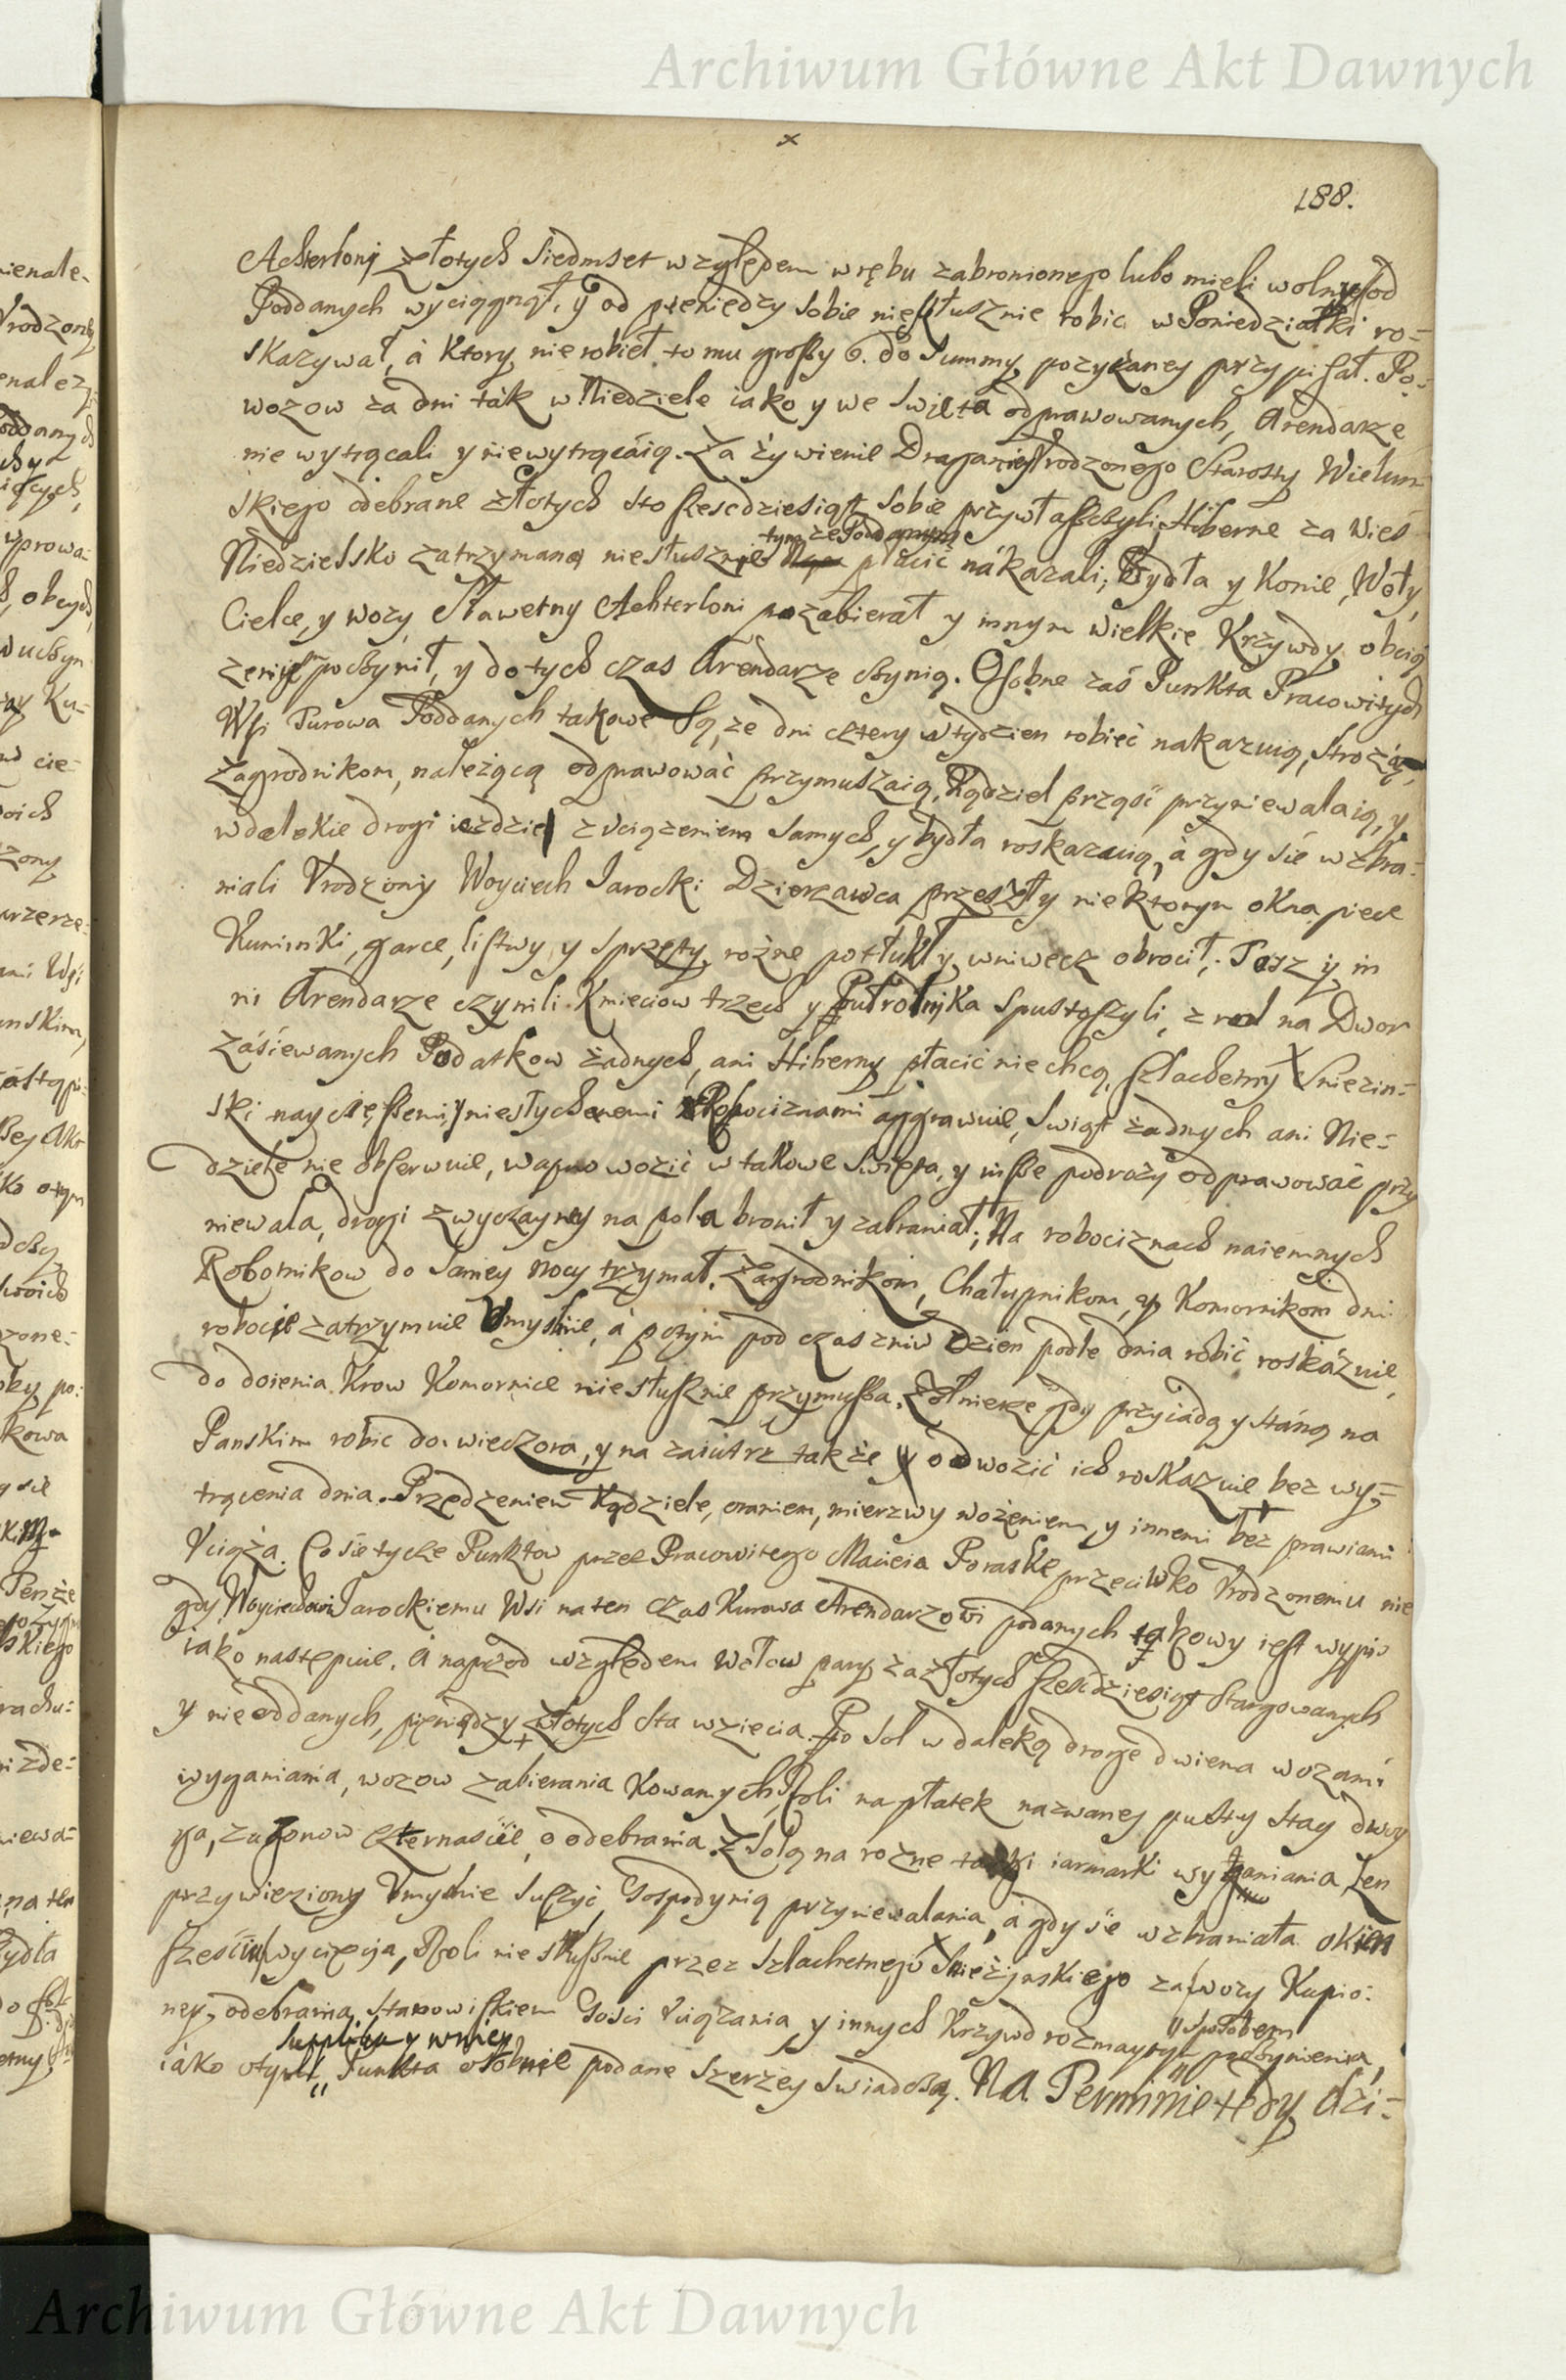 Archiwum Główne Akt Dawnych
188.
Achterloni złotych siedmset względem wrębu zabronionego lubo mieli wolny od
Poddanych wyciągnął, y od pieniędzy sobie niesłusznie robić w Poniedziałki ro=
skazywał, à ktory nie robieł to mu groszy 6. do Summy pozyczaney przypisał. Po=
wozow za dni ták w Niedziele iako y we Swięta odprawowanych, Arendarze
nie wytrącali y niewytrącáią. Za żywienie Draganiey Vrodzonego Starosty Wieluń
skiego odebrane złotych sto szescdziesiąt sobie przywłaszczyli; Hiberne za Wieś
Niedzielsko zatrzymaną niesłusznie tymze Poddanym płacić nákazali; Bydła y Konie, Woły,
Cielce, y wozy Sławetny Achterloni pozabierał y innym wielkie Krzywdy obcią
zenia poczynił, y do tych czas Arendarze czynią. Osobne zaś Punkta Pracowitych
Wsi Turowa Poddanych takowe są, ze dni cztery w tydzien robieć nakazuią, Strozą
Zagrodnikom, należącą odprawować przymuszaią, Kądziel prząść przyniewalaią, y
w dalekie drogi iezdzić z vciązeniem samych, y bydła roskazuią, à gdy się wzbra=
niali Vrodzony Woyciech Jarocki Dzierzawca przeszły niektorym okna piece
Kuminki, garce, listwy, y sprzęty rożne potłukł y wniwecz obrocił; Tosz y in
ni Arendarze czynili. Kmieciow trzech y Pułrolnika spustoszyli, z rol na Dwor
zásiewanych Podatkow żadnych, ani Hiberny płacić nie chcą. Szlachetny Sniezin=
ski naycięższemi, y niesłychanemi Robociznami aggrawuie, Swiąt żadnych ani Nie=
dziele nie obserwuie, wapno wozić w takowe swięta, y insze podrozy odprawować przy
niewala, drogi zwyczayney na pola bronił y zabraniał; Na robociznach naiemnych
Robotnikow do samey nocy trzymał. Zagrodnikom, Chałupnikom, y Komornikom dni
robocie zatrzymuie Vmyslnie, à potym pod czas zniw dzien podle dnia robić roskázuie,
do doienia Krow Komornice niesłusznie przymusza. Zołnierze gdy przyiádą y stáną na
Panskim robic do wieczora, y na zaiutrz także y odwozić ich roskazuie bez wy=
trącenia dnia. Przędzeniem Kądziele, oraniem, mierzwy wożeniem, y innemi bezprawiami
Vciąża. Co się tycze Punktow przez Pracowitego Macieia Poraske przeciwko Vrodzonemu nie
gdy Woyciechowi Jarockiemu Wsi na ten czas Kurowa Arendarzowi podanych takowy iest wypis
iako następuie. A naprzod względem Wołow pary za złotych szescdziesiąt stargowanych
y nie oddanych, pieniędzy złotych sta wziecia. Po sol w daleką drogę dwiema wozami
wyganiania, wozow zabierania Kowanych, Roli na płatek nazwaney pustej stay dwoy
ga, zagonow czternascie, odebrania. Z solą na rozne targi iarmarki wyganiania, Len
przywieziony Vmyslnie suszyć Gospodynią przyniewalania, à gdy się wzbraniała okien
szesciu wycięcia, Roli niesłusznie przez Szlachetnego Snieżinskiego za wozy Kupio=
ney, odebrania, Stanowiskiem Gosci Vciązania y innych Krzywd rozmaytym sposobem poczynienia,
iáko otym Supplika y w niey Punkta osobnie podane szerzey swiadczą. Na Terminie tedy dzi=
Archiwum Główne Akt Dawnych